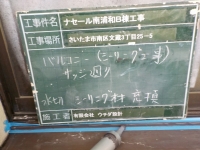 工事件名 ナセール南浦和B棟工事
工事場所 さいたま市南区文蔵3丁目25-3
バルコニー (シーリング工事)
サッシ廻り
水切 シーリング材 充填
施工者 有限会社 ウチダ設計